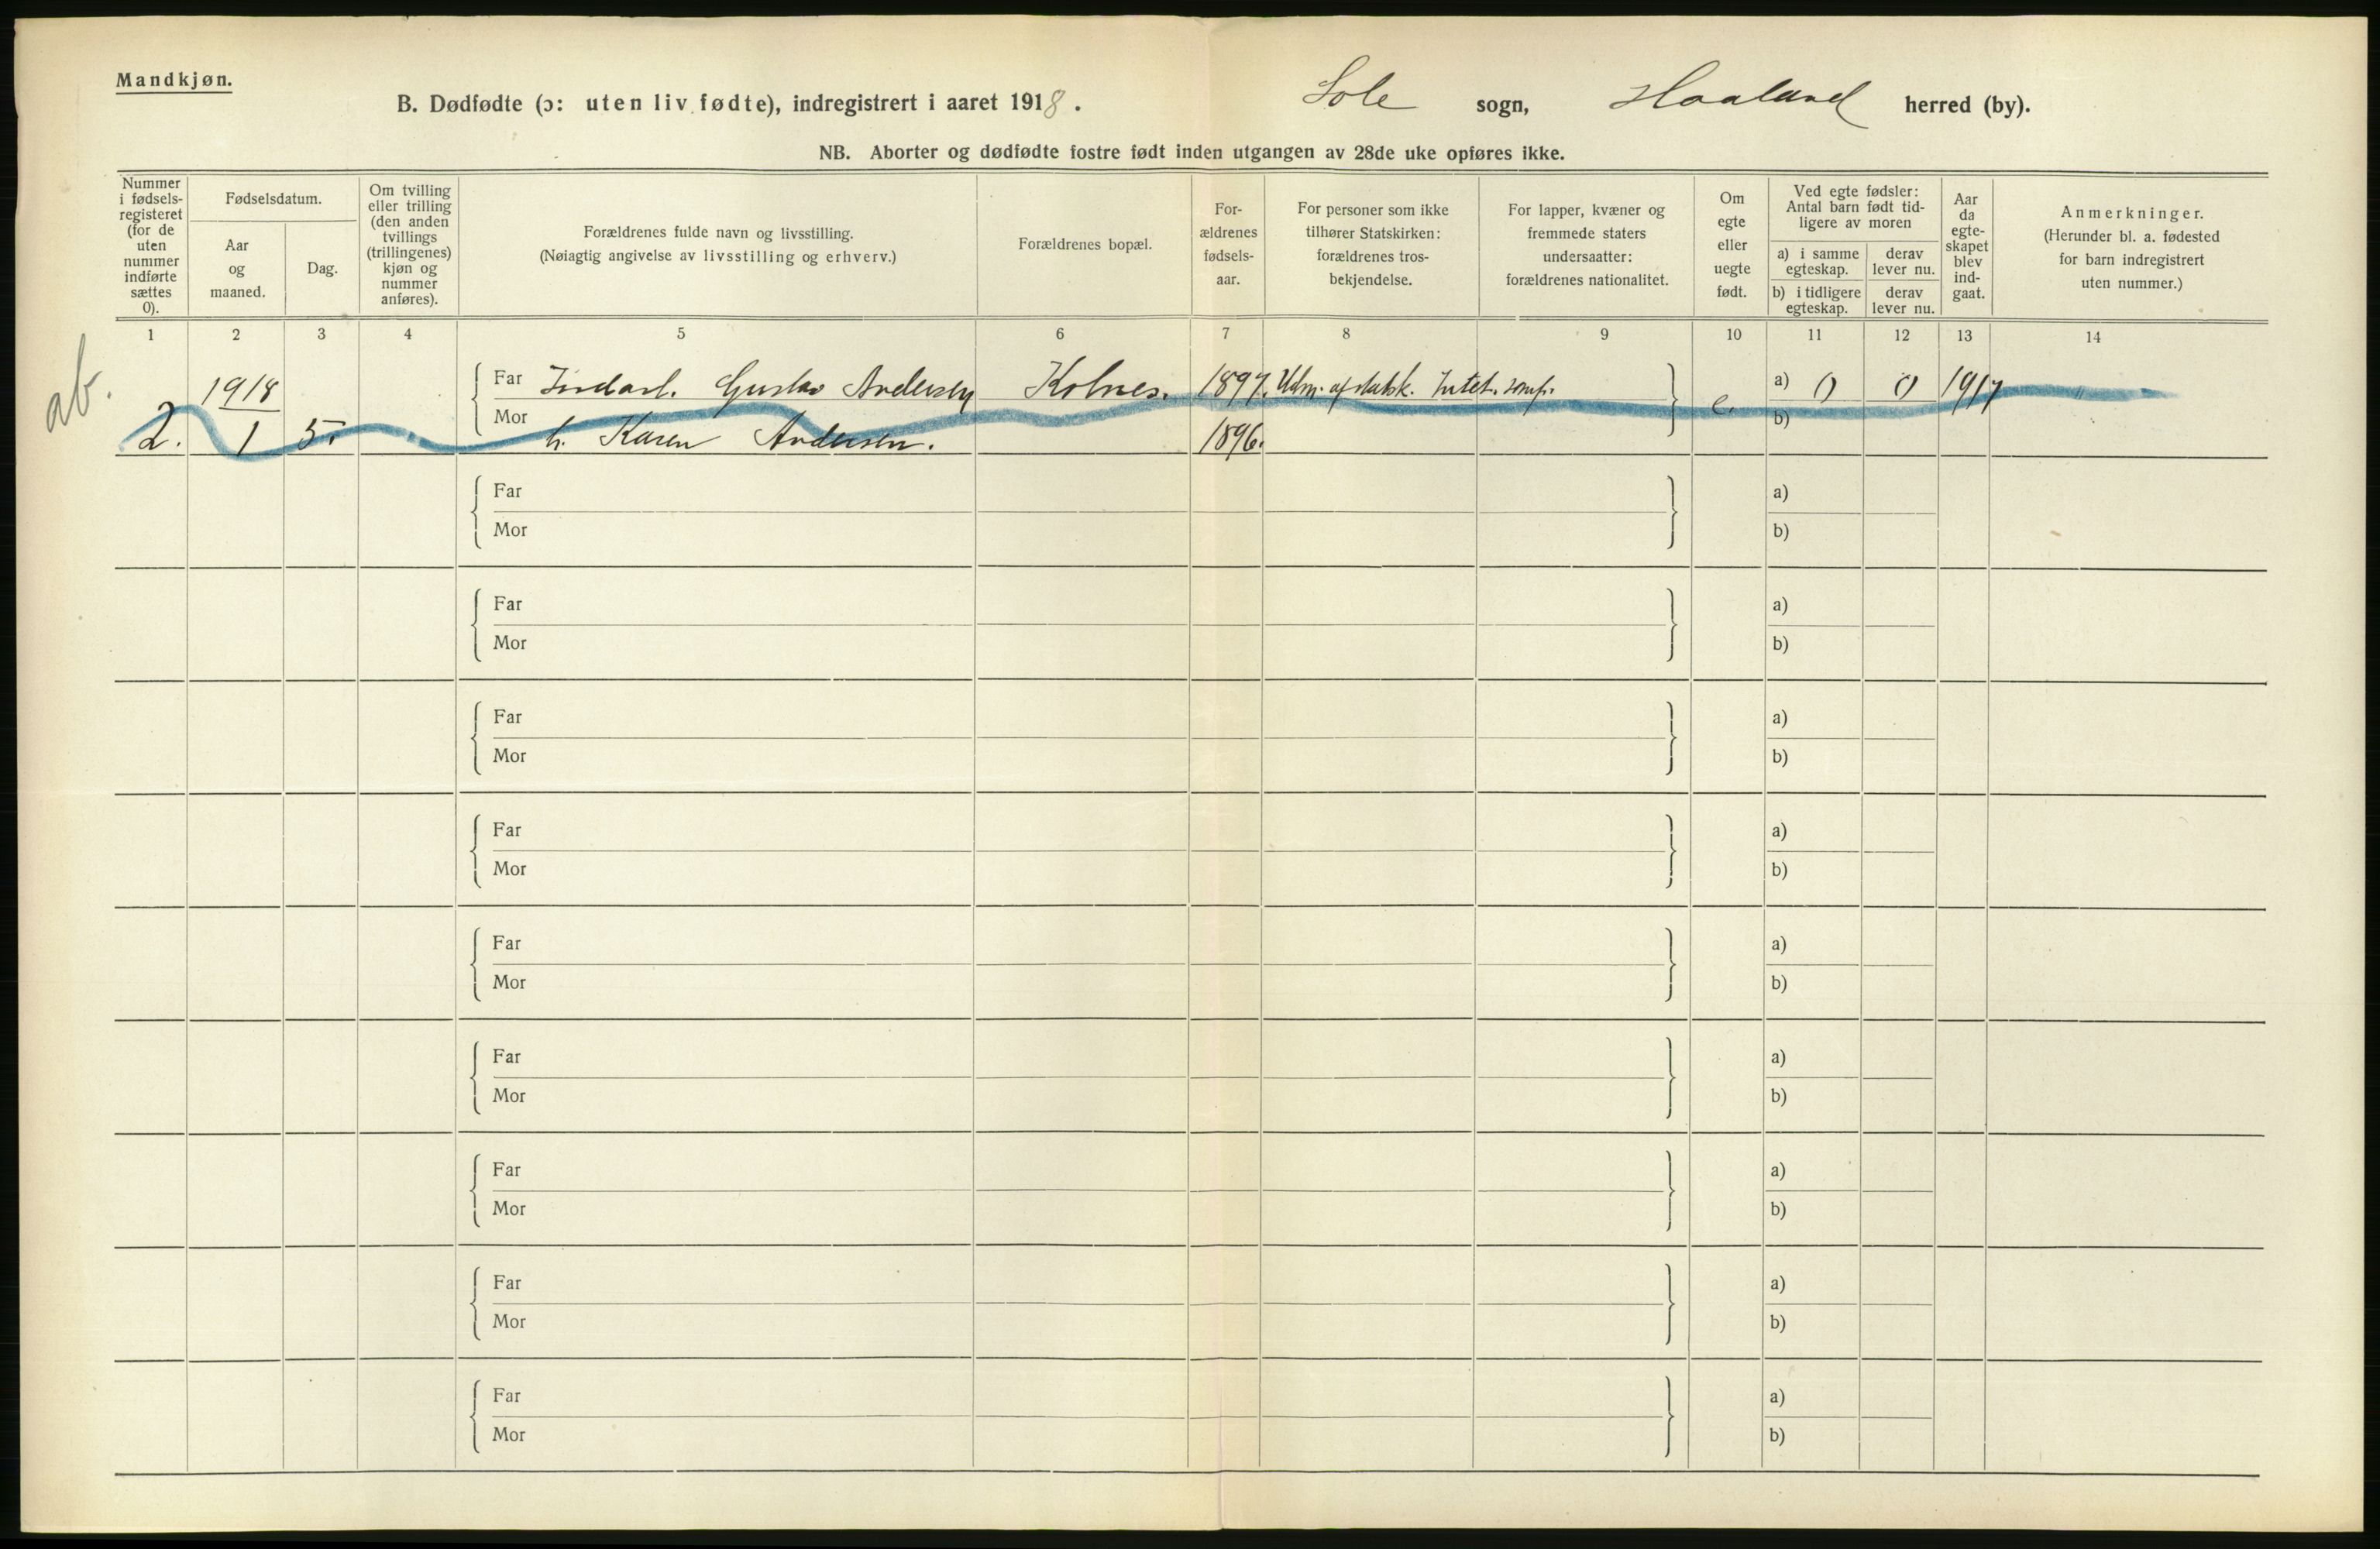 Mandkjøn.
B. Dødfødte (ɔ: uten liv fødte), indregistrert i aaret 1918. Sole sogn, Haaland herred (by).
NB. Aborter og dødfødte fostre født inden utgangen av 28de uke opføres ikke.
Nummer
i fødsels-
registeret
(for de
uten
nummer
indførte
sættes
0).
Fødselsdatum.
Aar
og
maaned.
Dag.
Om tvilling
eller trilling
(den anden
tvillings
(trillingenes)
kjøn og
nummer
anføres).
Forældrenes fulde navn og livsstilling.
(Nøiagtig angivelse av livsstilling og erhverv.)
Forældrenes bopæl.
For-
ældrenes
fødsels-
aar.
For personer som ikke
tilhører Statskirken:
forældrenes tros-
bekjendelse.
For lapper, kvæner og
fremmede staters
undersaatter:
forældrenes nationalitet.
Om
egte
eller
uegte
født.
Ved egte fødsler:
Antal barn født tid-
ligere av moren
a) i samme
egteskap.
derav
lever nu.
b) i tidligere
egteskap.
derav
lever nu.
Aar
da
egte-
skapet
blev
ind-
gaat.
Anmerkninger.
(Herunder bl. a. fødested
for barn indregistrert
uten nummer.)
1 2 3 4 5 6 7 8 9 10 11 12 13 14
ab.
1918
Far Gustav Andersen Kolnes. 1897. Udm. af statsk. Intet. samf. a) 0 0 1917
2. 1 5. Mor h. Karen Andersen. 1896. e. b)
Far a)
Mor b)
Far a)
Mor b)
Far a)
Mor b)
Far a)
Mor b)
Far a)
Mor b)
Far a)
Mor b)
Far a)
Mor b)
Far a)
Mor b)
Far a)
Mor b)